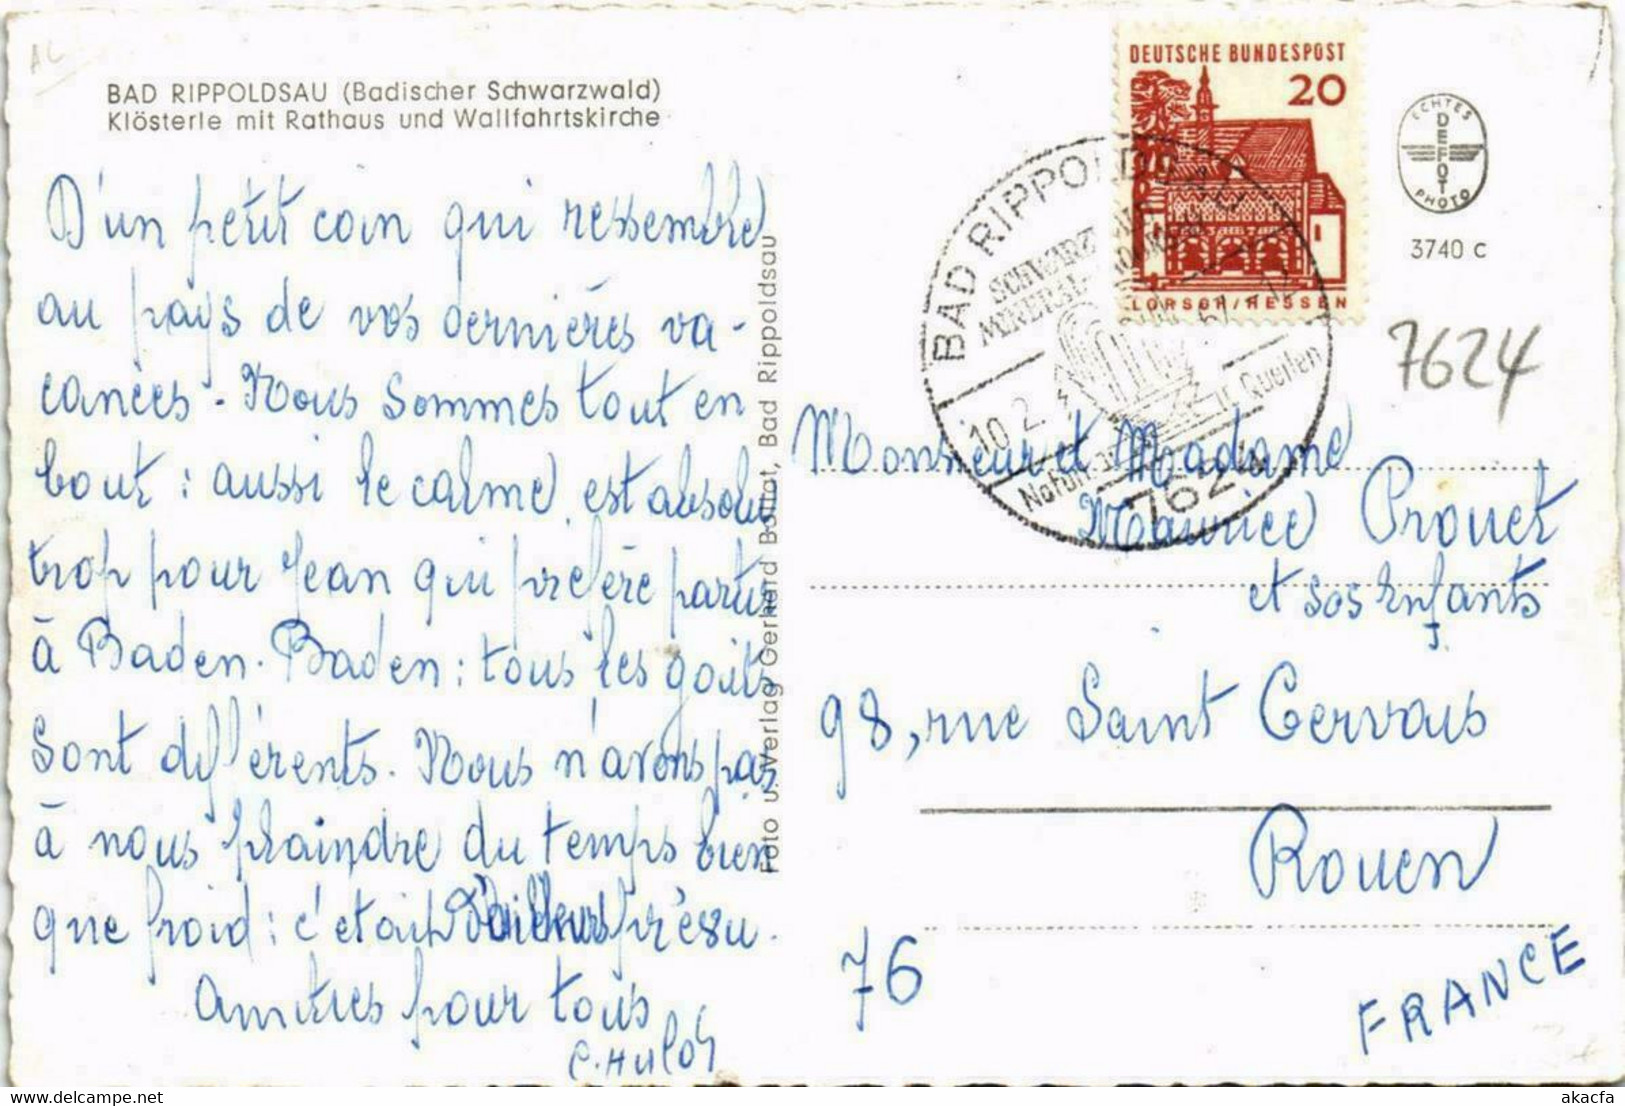 AL
BAD RIPPOLDSAU (Badischer Schwarzwald)
Klösterle mit Rathaus und Wallfahrtskirche
D'un petit coin qui ressemble
au pays de vos dernières va-
cances. Nous sommes tout en
bout : aussi le calme est absolu
trop pour Jean qui préfère partir
à Baden-Baden : tous les goûts
sont différents. Nous n'avons pas
à nous plaindre du temps bien
que froid : c'était d'ailleurs prévu.
Amitiés pour tous
C. Hulot
Foto u. Verlag Gerhard Bollrat, Bad Rippoldsau
DEUTSCHE BUNDESPOST
20
LORSCH/HESSEN
BAD RIPPOLDSAU
SCHWARZ
MINERAL
10.2.
Quellen
7624
ECHTES
DEFOT
PHOTO
3740 c
7624
Monsieur et Madame
Maurice Prouet
et ses Enfants
98, rue Saint Gervais
Rouen
76
FRANCE
www.delcampe.net
akacfa